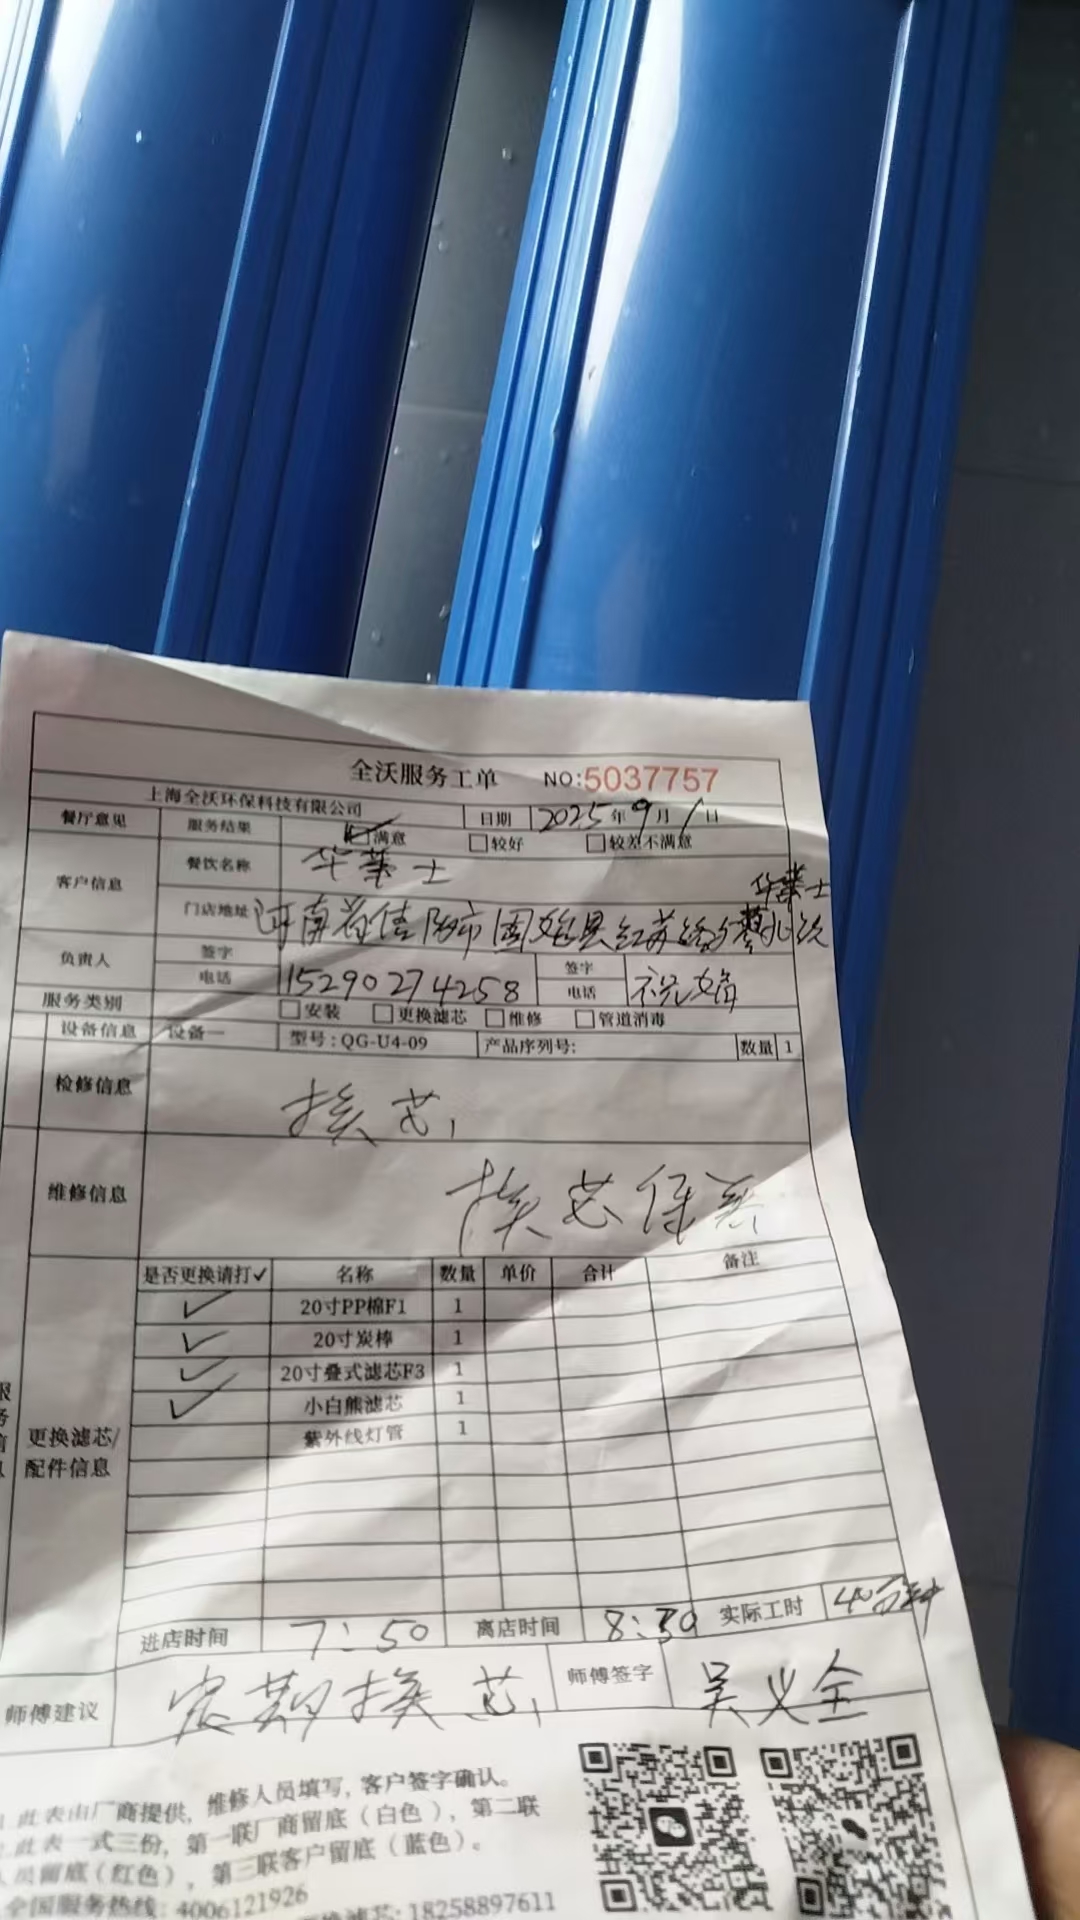 全沃服务工单 NO:5037757
上海全沃环保科技有限公司 日期 2025年9月1日
餐厅意见 服务结果 满意 较好 较差不满意
客户信息 餐饮名称 华莱士
华莱士
门店地址 河南省信阳市固始县红苏路与蓼北路
负责人 签字 签字
电话 15290274258 电话 祝婧
服务类别 安装 更换滤芯 维修 管道消毒
设备信息 设备一 型号:QG-U4-09 产品序列号: 数量 1
检修信息 换芯
维修信息 换芯保养
是否更换请打✓ 名称 数量 单价 合计 备注
✓ 20寸PP棉F1 1
✓ 20寸炭棒 1
✓ 20寸叠式滤芯F3 1
✓ 小白熊滤芯 1
紫外线灯管 1
更换滤芯/
配件信息
进店时间 7:50 离店时间 8:30 实际工时 40分钟
师傅建议 定期换芯 师傅签字 吴义全
此表由厂商提供,维修人员填写,客户签字确认。
此表一式三份,第一联厂商留底(白色),第二联
人员留底(红色),第三联客户留底(蓝色)。
全国服务热线:4006121926
换滤芯:18258897611